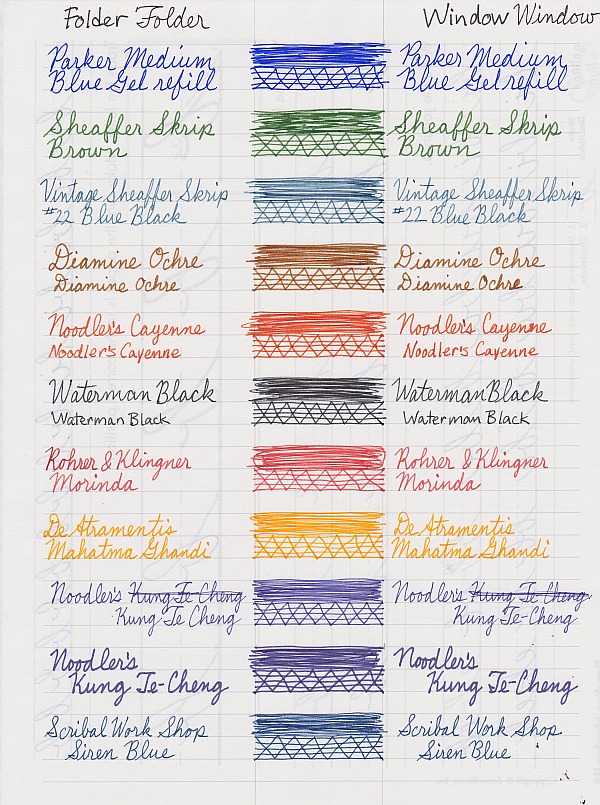 Folder Folder Window Window
Parker Medium Parker Medium
Blue Gel refill Blue Gel refill
Sheaffer Skrip Sheaffer Skrip
Brown Brown
Vintage Sheaffer Skrip Vintage Sheaffer Skrip
#22 Blue Black #22 Blue Black
Diamine Ochre Diamine Ochre
Diamine Ochre Diamine Ochre
Noodler's Cayenne Noodler's Cayenne
Noodler's Cayenne Noodler's Cayenne
Waterman Black Waterman Black
Waterman Black Waterman Black
Rohrer & Klingner Rohrer & Klingner
Morinda Morinda
De Atramentis De Atramentis
Mahatma Ghandi Mahatma Ghandi
Noodler's Kung Te-Cheng Noodler's Kung Te-Cheng
Kung Te Cheng Kung Te-Cheng
Noodler's Noodler's
Kung Te-Cheng Kung Te-Cheng
Scribal Work Shop Scribal Work Shop
Siren Blue Siren Blue